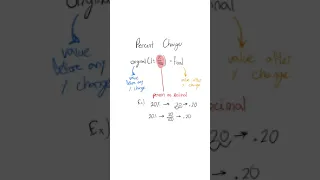 Percent Change
original (1±
= Final
value
before any
% change
value after
% change
percent as decimal
Ex) 20% → .20
20% → 20/100 → .20
original
value
before any
% change
Ex)
value after
% change
decimal
20 → .20
.20